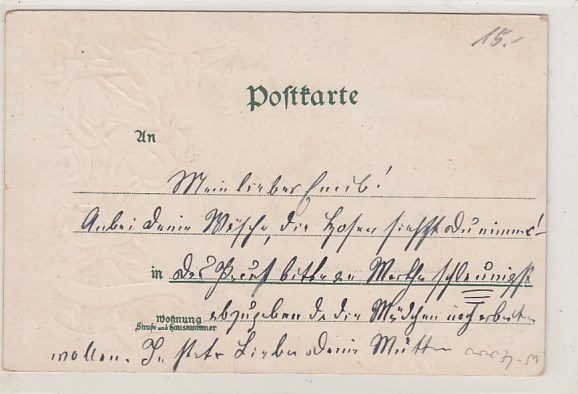 15.-
Postkarte
An
Mein lieber Emil!
Anbei deine Wäsche, die Hosen siehst Du nimmer!
in
Das bitte an Martha schleunigst
Wohnung
Straße und Hausnummer
abzugeben da die Mädchen noch arbeiten
wollen. In steter Liebe deine Mutter